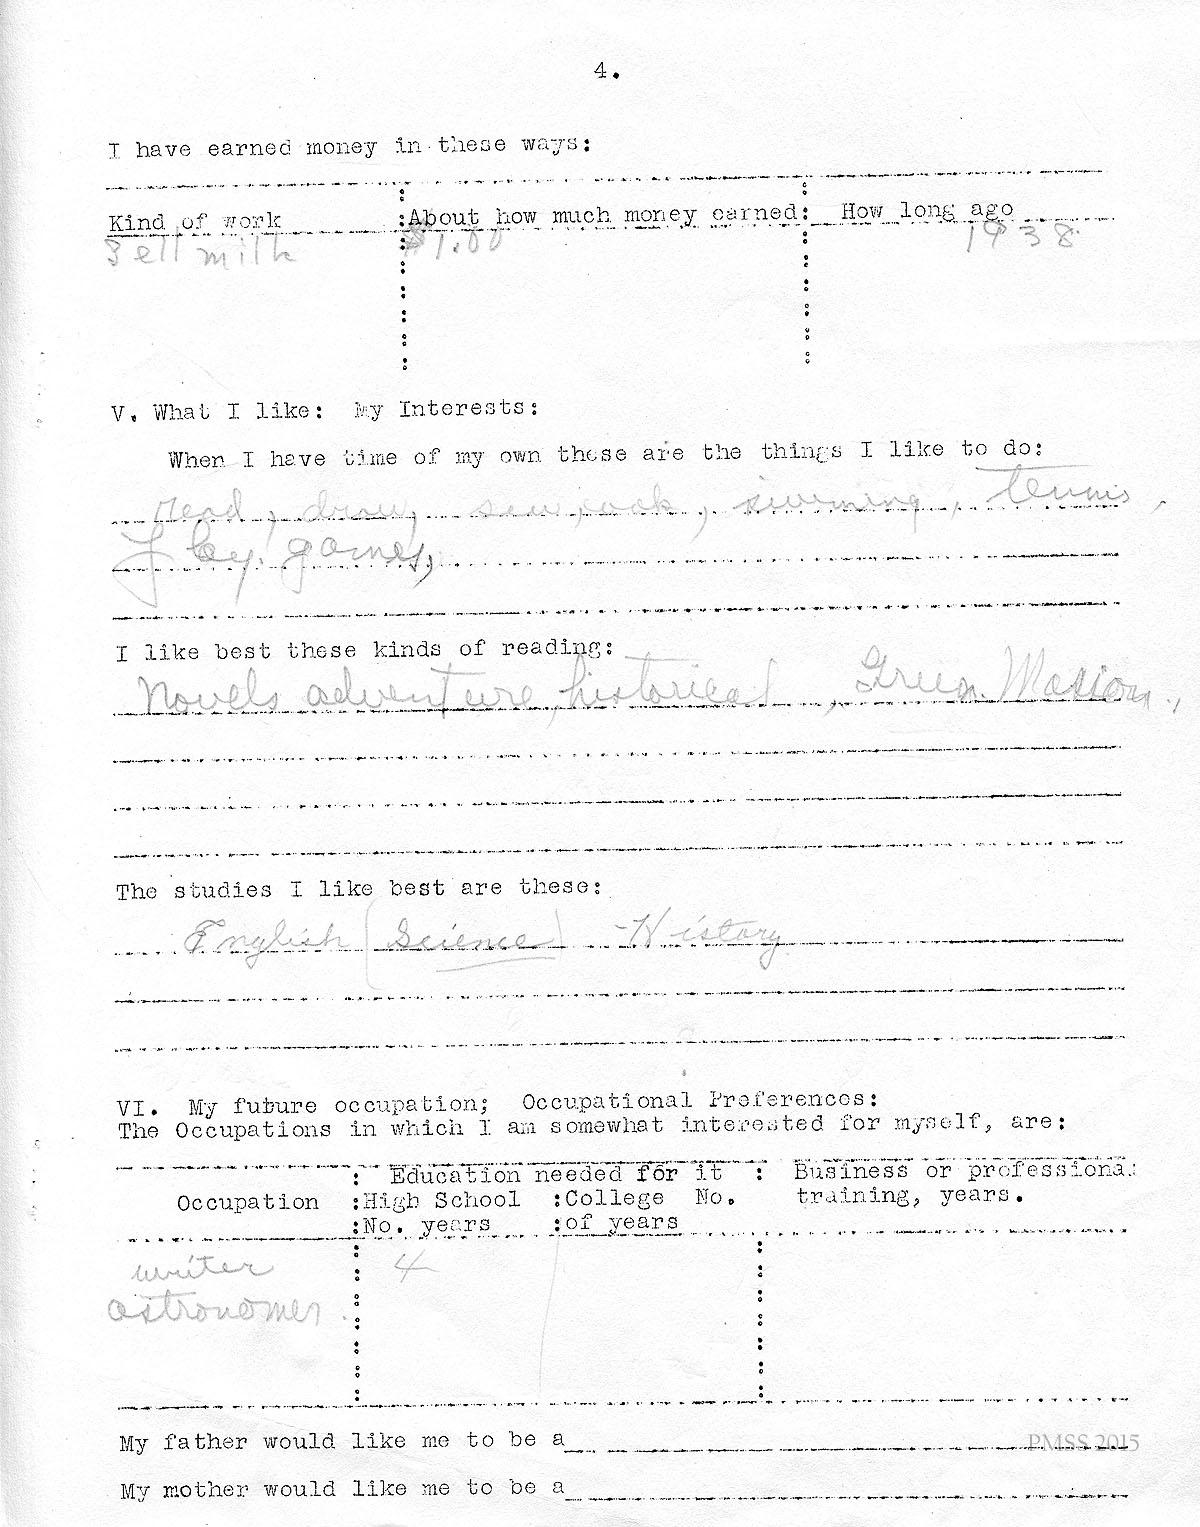 4.
I have earned money in these ways:
Kind of work :About how much money earned: How long ago
Sell milk $1.00 1938
V. What I like: My Interests:
When I have time of my own these are the things I like to do:
read, draw, sew, cook, swimming, tennis,
Play games,
I like best these kinds of reading:
Novels adventure, historical, Green Masions,
The studies I like best are these:
English (Science) History
VI. My future occupation; Occupational Preferences:
The Occupations in which I am somewhat interested for myself, are:
: Education needed for it : Business or professional
Occupation :High School :College No. training, years.
:No. years :of years
writer 4
astronomer
My father would like me to be a
PMSS 2015
My mother would like me to be a